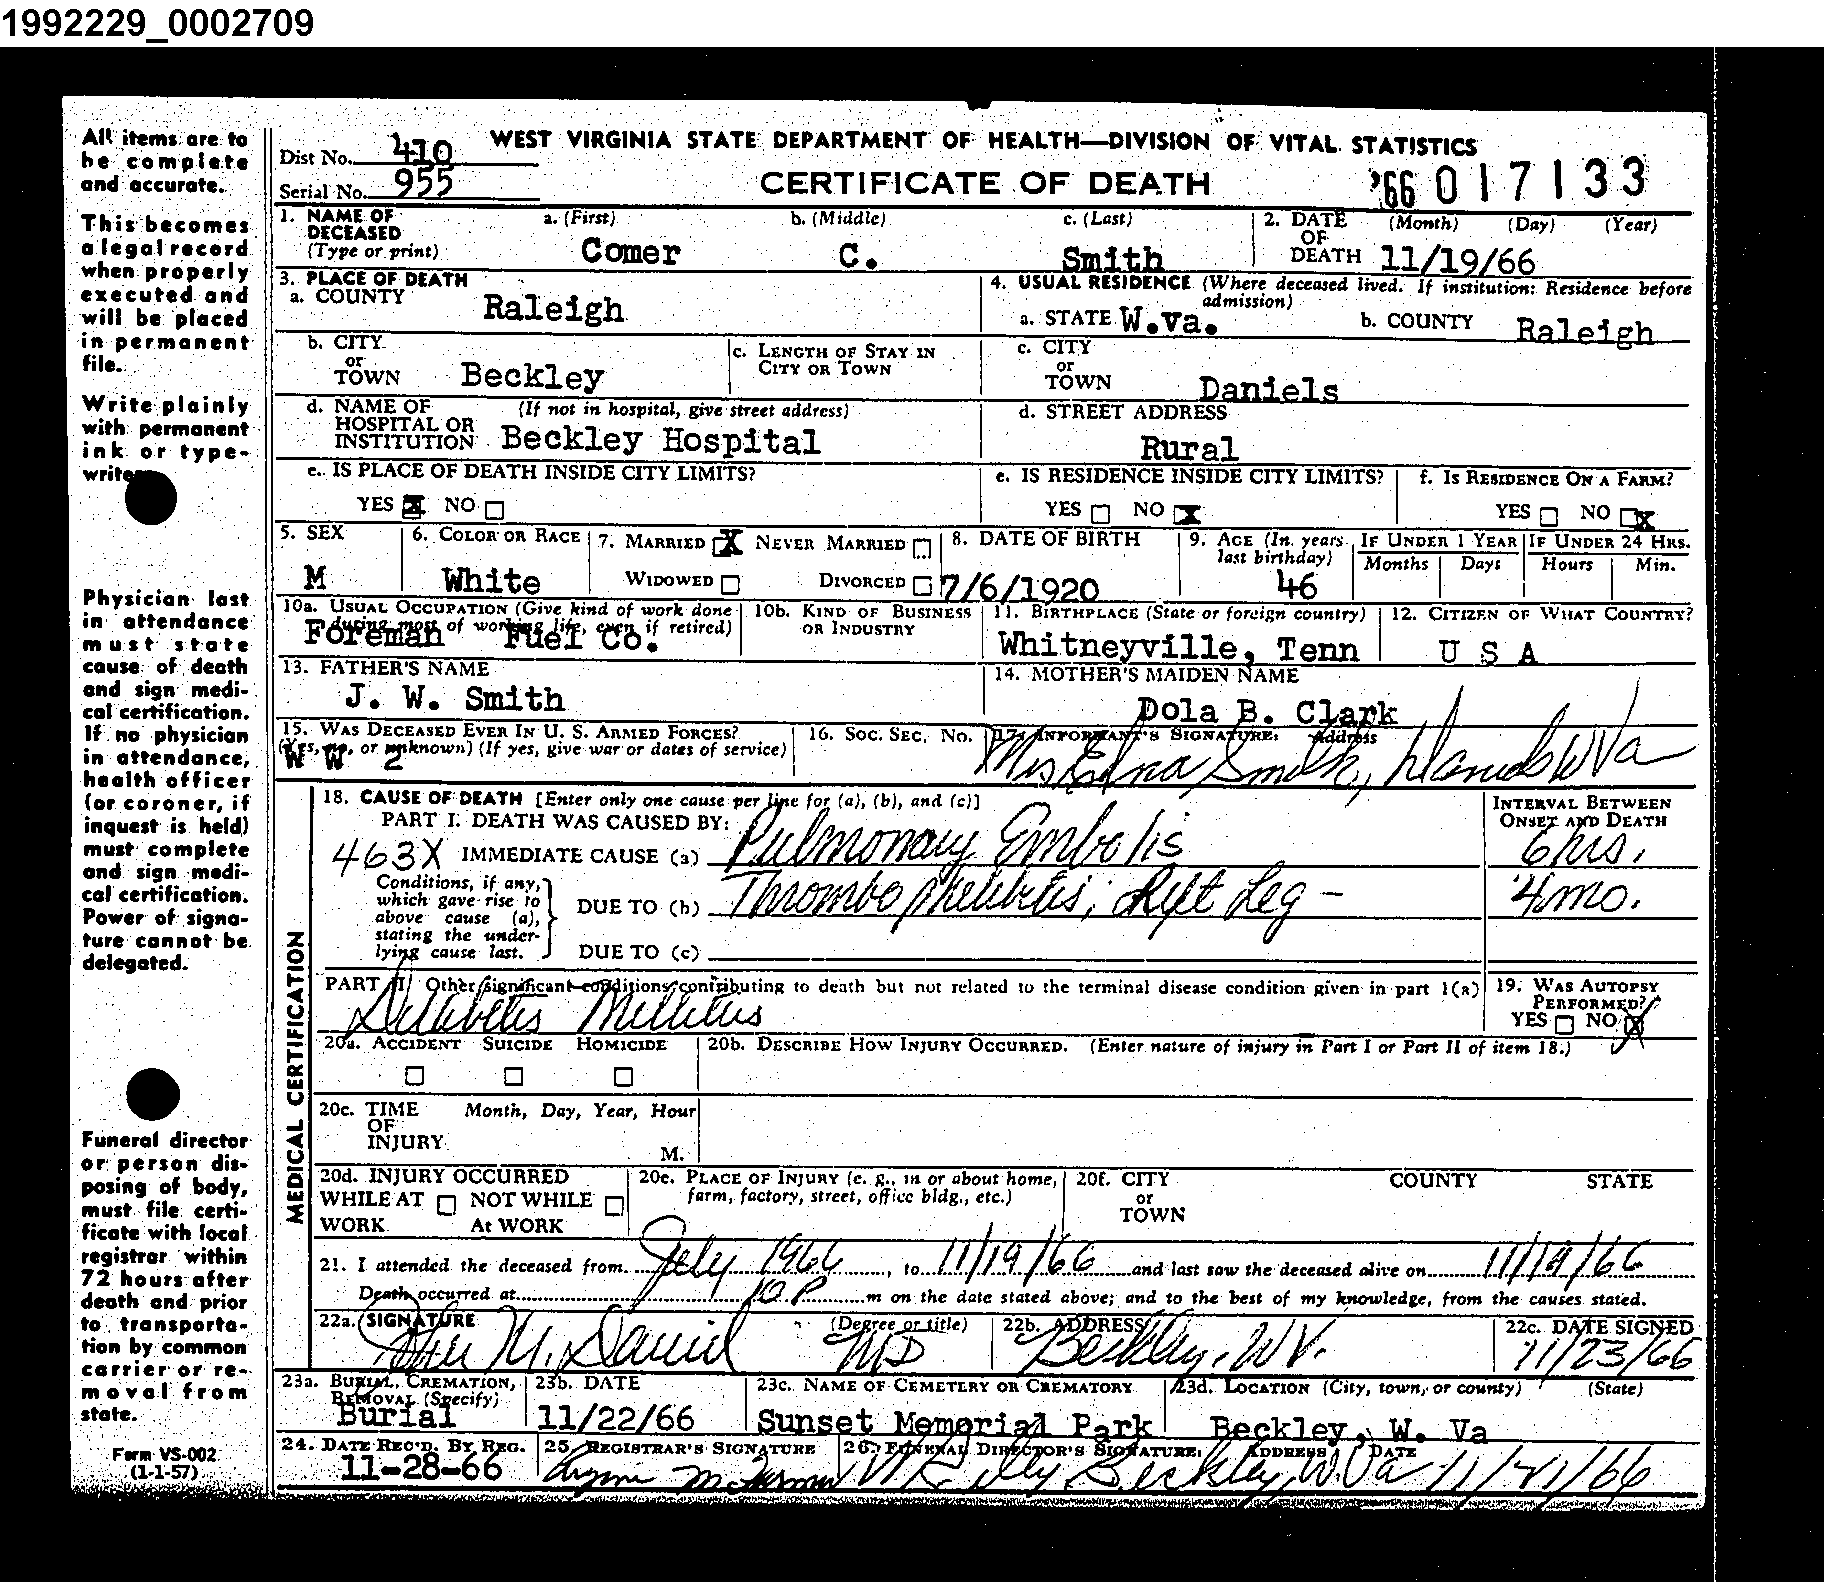 1992229_0002709
All items are to
be complete
and accurate.
This becomes
a legal record
when properly
executed and
will be placed
in permanent
file.
Write plainly
with permanent
ink or type-
write
Physician last
in attendance
must state
cause of death
and sign medi-
cal certification.
If no physician
in attendance,
health officer
(or coroner, if
inquest is held)
must complete
and sign medi-
cal certification.
Power of signa-
ture cannot be
delegated.
Funeral director
or person dis-
posing of body,
must file certi-
ficate with local
registrar within
72 hours after
death and prior
to transporta-
tion by common
carrier or re-
moval from
state.
Form VS-002
(1-1-57)
WEST VIRGINIA STATE DEPARTMENT OF HEALTH—DIVISION OF VITAL STATISTICS
Dist No. 410
Serial No. 955
CERTIFICATE OF DEATH
'66 017133
1. NAME OF DECEASED (Type or print) a. (First) b. (Middle) c. (Last)
Comer C. Smith
2. DATE OF DEATH (Month) (Day) (Year)
11/19/66
3. PLACE OF DEATH
a. COUNTY Raleigh
4. USUAL RESIDENCE (Where deceased lived. If institution: Residence before admission)
a. STATE W.va. b. COUNTY Raleigh
b. CITY or TOWN Beckley
c. LENGTH OF STAY IN CITY OR TOWN
c. CITY or TOWN Daniels
d. NAME OF HOSPITAL OR INSTITUTION (If not in hospital, give street address)
Beckley Hospital
d. STREET ADDRESS
Rural
e. IS PLACE OF DEATH INSIDE CITY LIMITS?
YES X NO
e. IS RESIDENCE INSIDE CITY LIMITS?
YES NO X
f. IS RESIDENCE ON A FARM?
YES NO X
5. SEX M
6. COLOR OR RACE White
7. MARRIED X NEVER MARRIED
WIDOWED DIVORCED
8. DATE OF BIRTH 7/6/1920
9. AGE (In years last birthday) 46
IF UNDER 1 YEAR Months Days
IF UNDER 24 HRS. Hours Min.
10a. USUAL OCCUPATION (Give kind of work done during most of working life, even if retired)
Foreman Fuel Co.
10b. KIND OF BUSINESS OR INDUSTRY
11. BIRTHPLACE (State or foreign country)
Whitneyville, Tenn
12. CITIZEN OF WHAT COUNTRY?
U S A
13. FATHER'S NAME
J. W. Smith
14. MOTHER'S MAIDEN NAME
Dola B. Clark
15. WAS DECEASED EVER IN U. S. ARMED FORCES?
(Yes, no, or unknown) (If yes, give war or dates of service)
W W 2
16. SOC. SEC. NO.
17. INFORMANT'S SIGNATURE: Address
Mrs Edna Smith, Daniels W Va
18. CAUSE OF DEATH [Enter only one cause per line for (a), (b), and (c)]
PART I. DEATH WAS CAUSED BY:
INTERVAL BETWEEN ONSET AND DEATH
463X IMMEDIATE CAUSE (a) Pulmonary Embolis 6 hrs.
Conditions, if any, which gave rise to above cause (a), stating the under-lying cause last.
DUE TO (b) Thrombophelibitis; Left Leg - 4 mo.
DUE TO (c)
PART II Other significant conditions contributing to death but not related to the terminal disease condition given in part 1(a)
Diabetes Mellitus
19. WAS AUTOPSY PERFORMED?
YES NO X
MEDICAL CERTIFICATION
20a. ACCIDENT SUICIDE HOMICIDE
20b. DESCRIBE HOW INJURY OCCURRED. (Enter nature of injury in Part I or Part II of item 18.)
20c. TIME OF INJURY Month, Day, Year, Hour
M.
20d. INJURY OCCURRED
WHILE AT WORK NOT WHILE At WORK
20e. PLACE OF INJURY (e. g., in or about home, farm, factory, street, office bldg., etc.)
20f. CITY or TOWN COUNTY STATE
21. I attended the deceased from July 1966, to 11/19/66 and last saw the deceased alive on 11/19/66
Death occurred at 10 P m on the date stated above; and to the best of my knowledge, from the causes stated.
22a. SIGNATURE (Degree or title)
M. Daniel MD
22b. ADDRESS
Beckley, W V.
22c. DATE SIGNED
11/23/66
23a. BURIAL, CREMATION, REMOVAL (Specify)
Burial
23b. DATE
11/22/66
23c. NAME OF CEMETERY OR CREMATORY
Sunset Memorial Park
23d. LOCATION (City, town, or county) (State)
Beckley, W. Va
24. DATE REC'D. BY REG.
11-28-66
25. REGISTRAR'S SIGNATURE
26. FUNERAL DIRECTOR'S SIGNATURE, ADDRESS, DATE
Beckley, W. Va 11/21/66